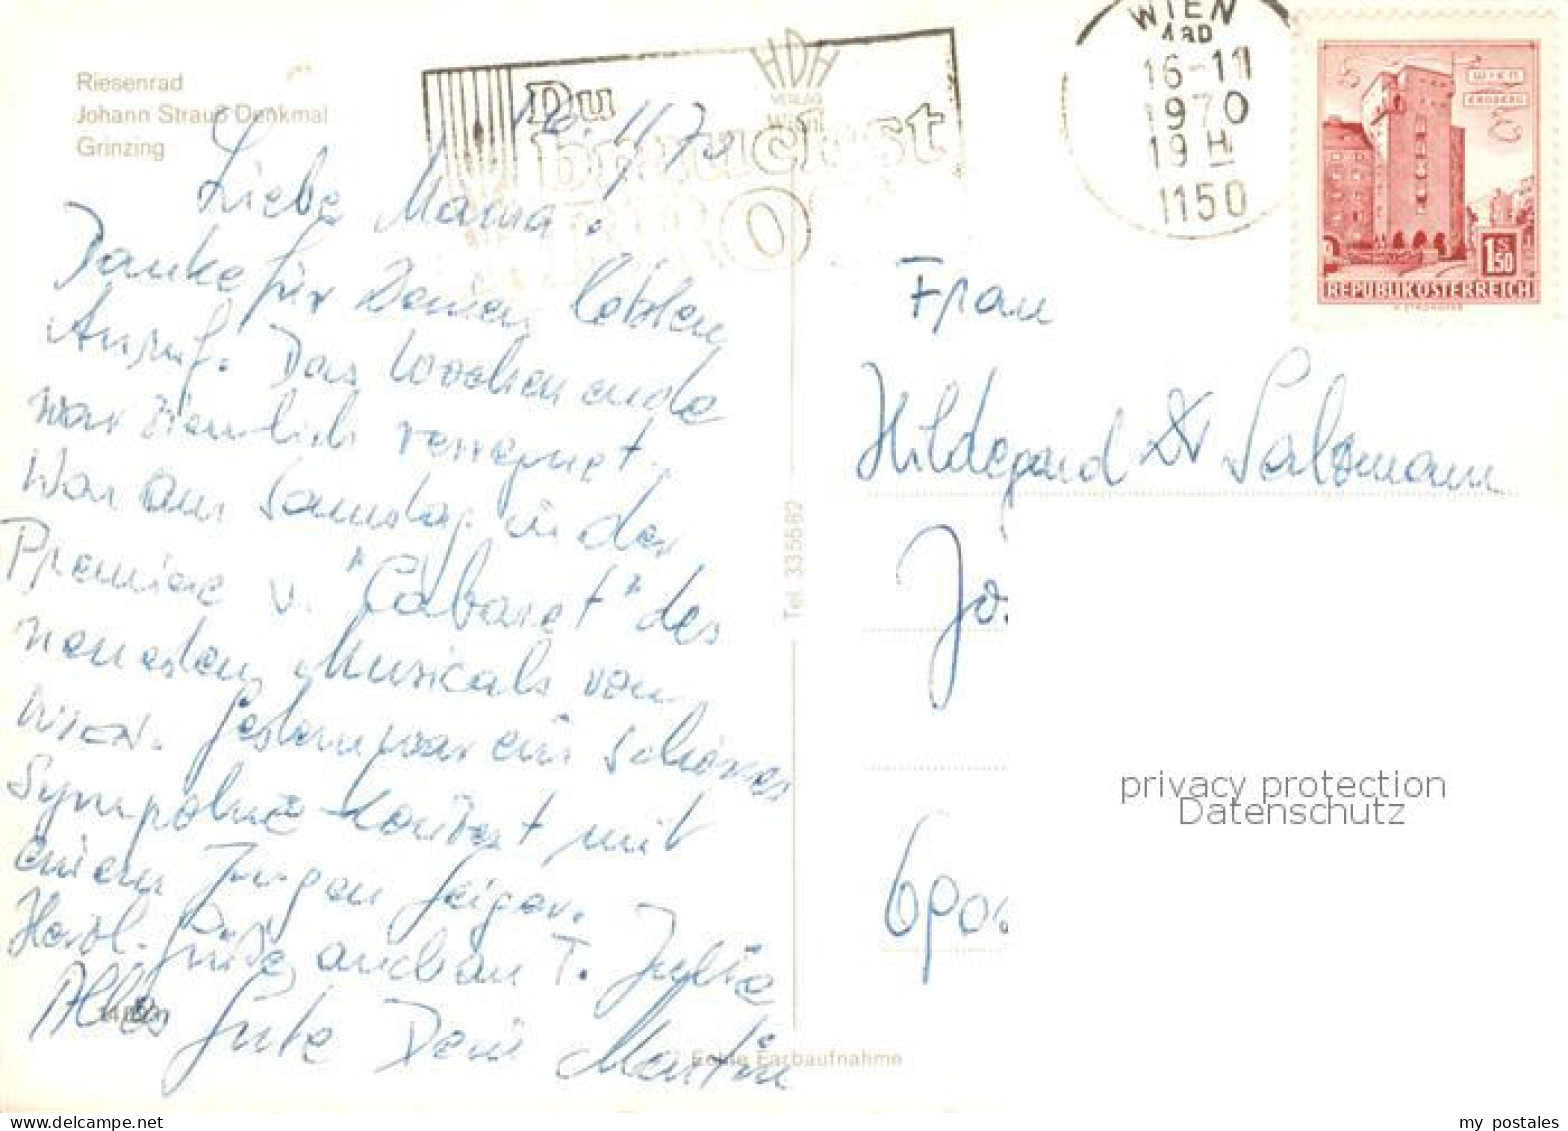 Riesenrad
Johann Strauß Denkmal
Grinzing
HDH
VERLAG
WIEN
Du
brauchst
WIEN
1150
16-11
1970
19 H
1150
WIEN
ERDBERG
1 S 50
REPUBLIK ÖSTERREICH
16.11.70
Liebe Mama!
Danke für Deinen lieben
Anruf. Das Wochenende
war ziemlich verregnet.
War am Samstag in der
Premiere v. "Cabaret" des
neuesten Musicals von
WIEN. Gestern war ein schönes
Symphonie-Konzert mit
einem jungen Geiger.
Herzl. Grüße, auch an T. Julie
Alles Gute Dein Martin
Tel. 335582
Echte Farbaufnahme
Frau
Hildegard Dr Salzmann
Jo
690
privacy protection
Datenschutz
my postales